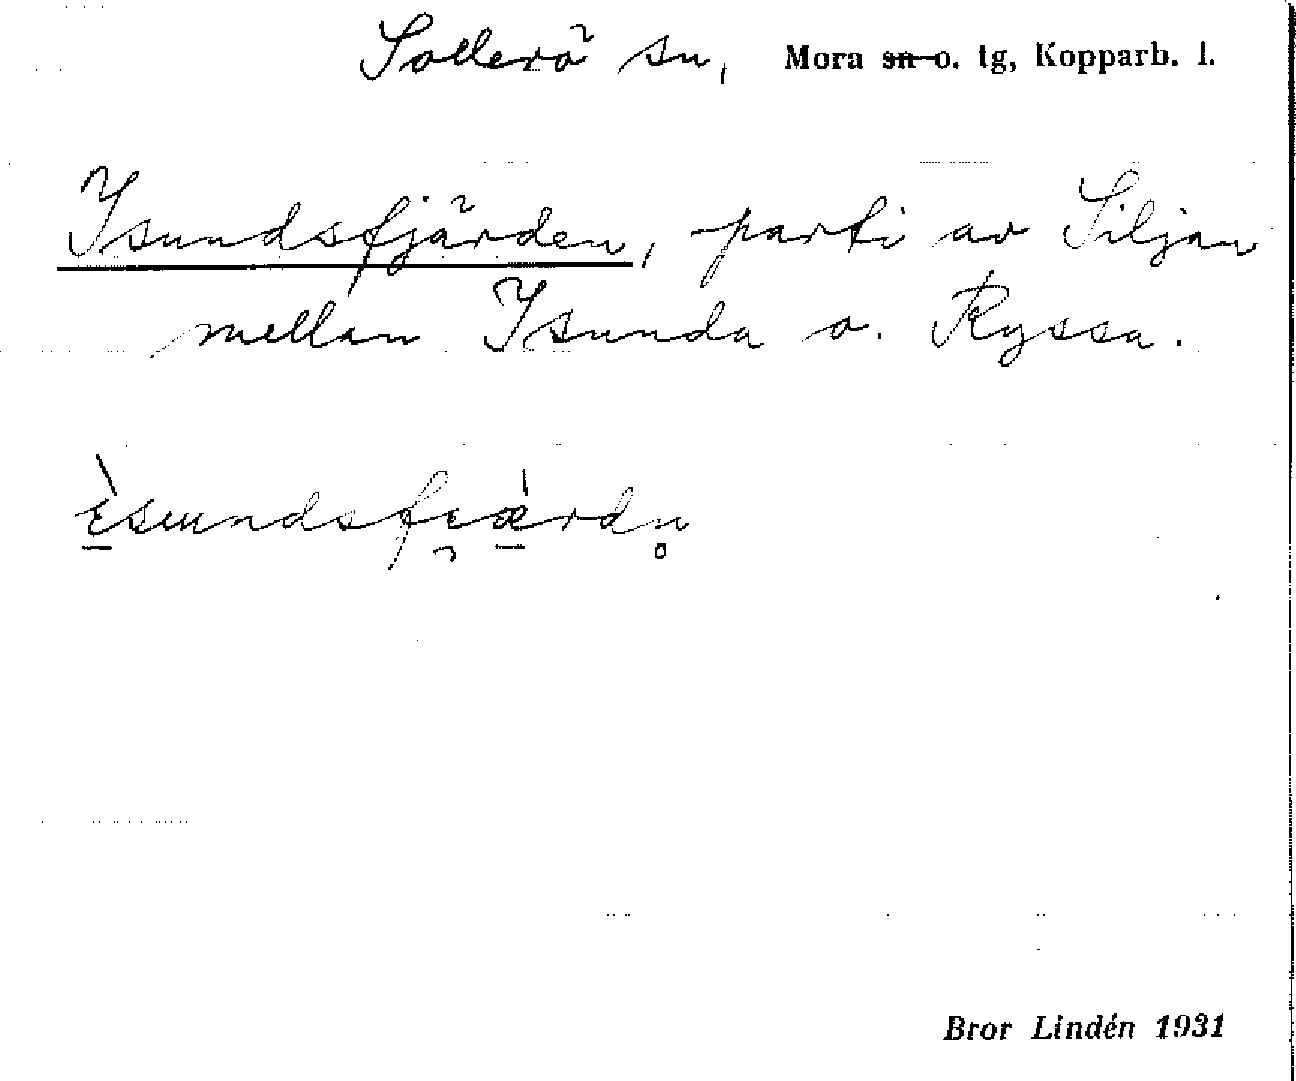 Sollerö sn, Mora sn o. tg, Kopparb. l.
Isundsfjärden, parti av Siljan
mellan Isunda o. Ryssa.
Bror Lindén 1931